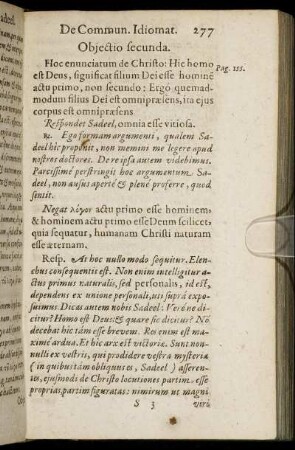 De Commun. Idiomat. 277
Objectio secunda.
Hoc enunciatum de Christo: Hic homo
est Deus, significat filium Dei esse hominē
actu primo, non secundo: Ergò quemad-
modum filius Dei est omnipræsens, ita ejus
corpus est omnipræsens
Pag. 111.
Respondet Sadeel, omnia esse vitiosa.
Ego formam argumenti, qualem Sa-
deel hic proponit, non memini me legere apud
nostros doctores. De re ipsa autem videbimus.
Parcissimè perstringit hoc argumentum Sa-
deel, non ausus apertè & plenè proferre, quod
sensit.
Negat λόγον actu primo esse hominem,
& hominem actu primo esse Deum scilicet,
quia sequatur, humanam Christi naturam
esse æternam.
Resp. At hoc nullo modo sequitur. Elen-
chus consequentis est. Non enim intelligitur a-
ctus primus naturalis, sed personalis, id est,
dependens ex unione personali, uti suprà expo-
suimus. Dicas autem nobis Sadeel: Veréne di-
citur? Homo est Deus: & quare sic dicitur? Nō
decebat hic tàm esse brevem. Res enim est ma-
ximè ardua. Et hic arx est victoriæ. Sunt non-
nulli ex vestris, qui prodidere vestra mysteria
(in quibus tàm obliquus es, Sadeel) asseren-
tes, ejusmodi de Christo locutiones partim esse
proprias, partim figuratas: nimirum ut magni
S 3 veri